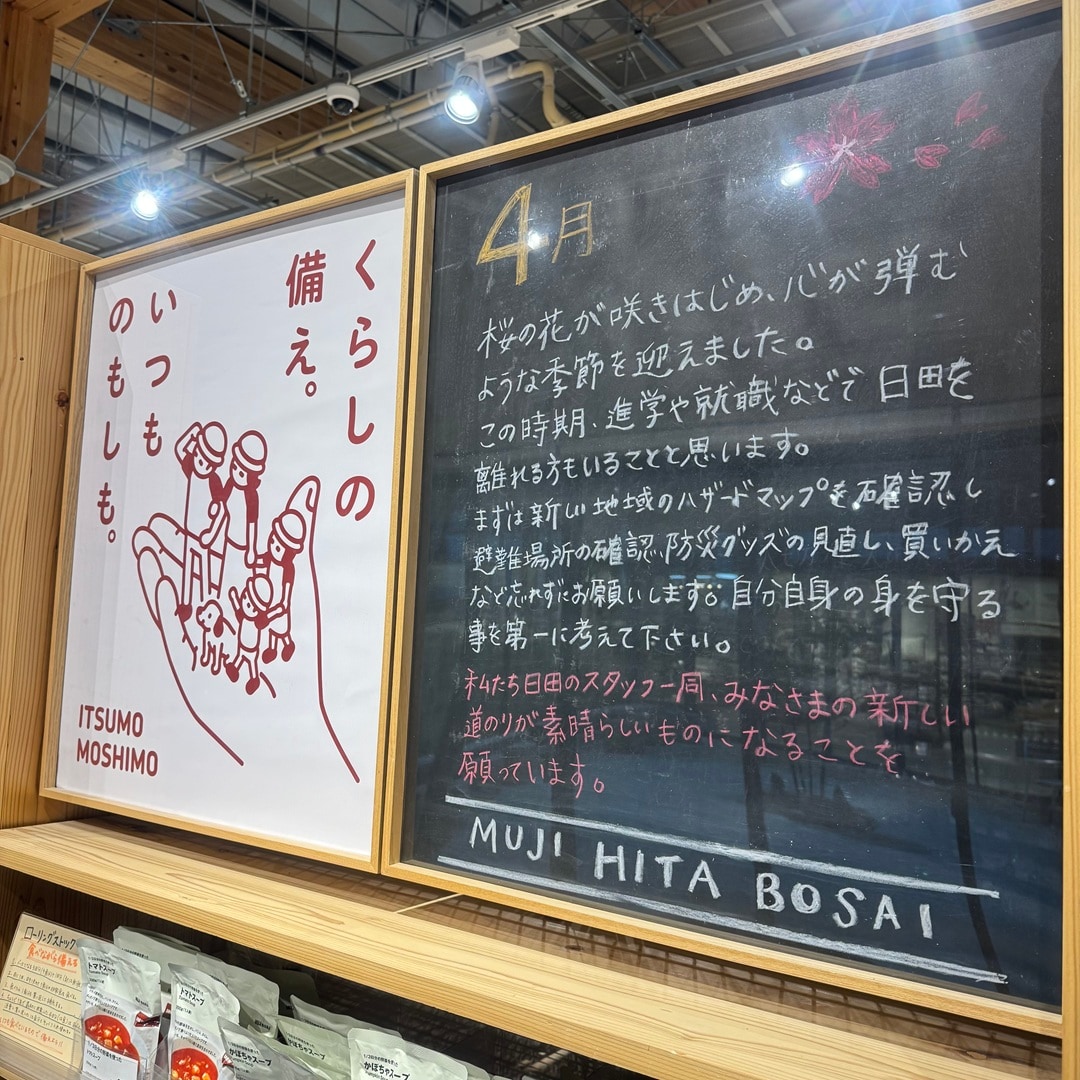 くらしの
備え。
いつも
のもしも。
ITSUMO
MOSHIMO
4月
桜の花が咲きはじめ、心が弾む
ような季節を迎えました。
この時期、進学や就職などで日田を
離れる方もいることと思います。
まずは新しい地域のハザードマップを確認し
避難場所の確認、防災グッズの見直し、買いかえ
など忘れずにお願いします。自分自身の身を守る
事を第一に考えて下さい。
私たち日田のスタッフ一同、みなさまの新しい
道のりが素晴らしいものになることを
願っています。
MUJI HITA BOSAI
ローリングストック
食べながら備える
トマトスープ
トマトスープ
かぼちゃスープ
かぼちゃスープ